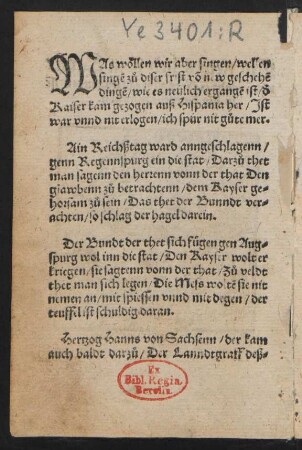 Ye 3401:R
WAs wöllen wir aber singen/ wellen
singē zů diser frist vō new geschehē
dingē/ wie es neülich ergangē ist/ ð
Kaiser kam gezogen auß Hispania her/ Ist
war vnnd nit erlogen/ ich spür nit gůte mer.
Ain Reichßtag ward anngeschlagenn/
genn Regennspurg ein die stat/ Darzů thet
man sagenn den herrenn vonn der that Den
glawbenn zů betrachtenn/ dem Kayser ge-
horsam zů sein/ Das thet der Bunndt ver-
achten/ so schlag der hagel darein.
Der Bundt der thet sich fügen gen Aug-
spurg wol inn die stat/ Den Kayser wolt er
kriegen/ sie sagtenn vonn der that/ Zů veldt
thet man sich legen/ Die Mess woltē sie nit
nemen an/ mit spiessen vnnd mit degen/ der
teuffl ist schuldig daran.
Hertzog Hanns von Sachsenn/ der kam
auch baldt darzů/ Der Lanndtgraff deß-
Ex
Bibl. Regia
Berolin.